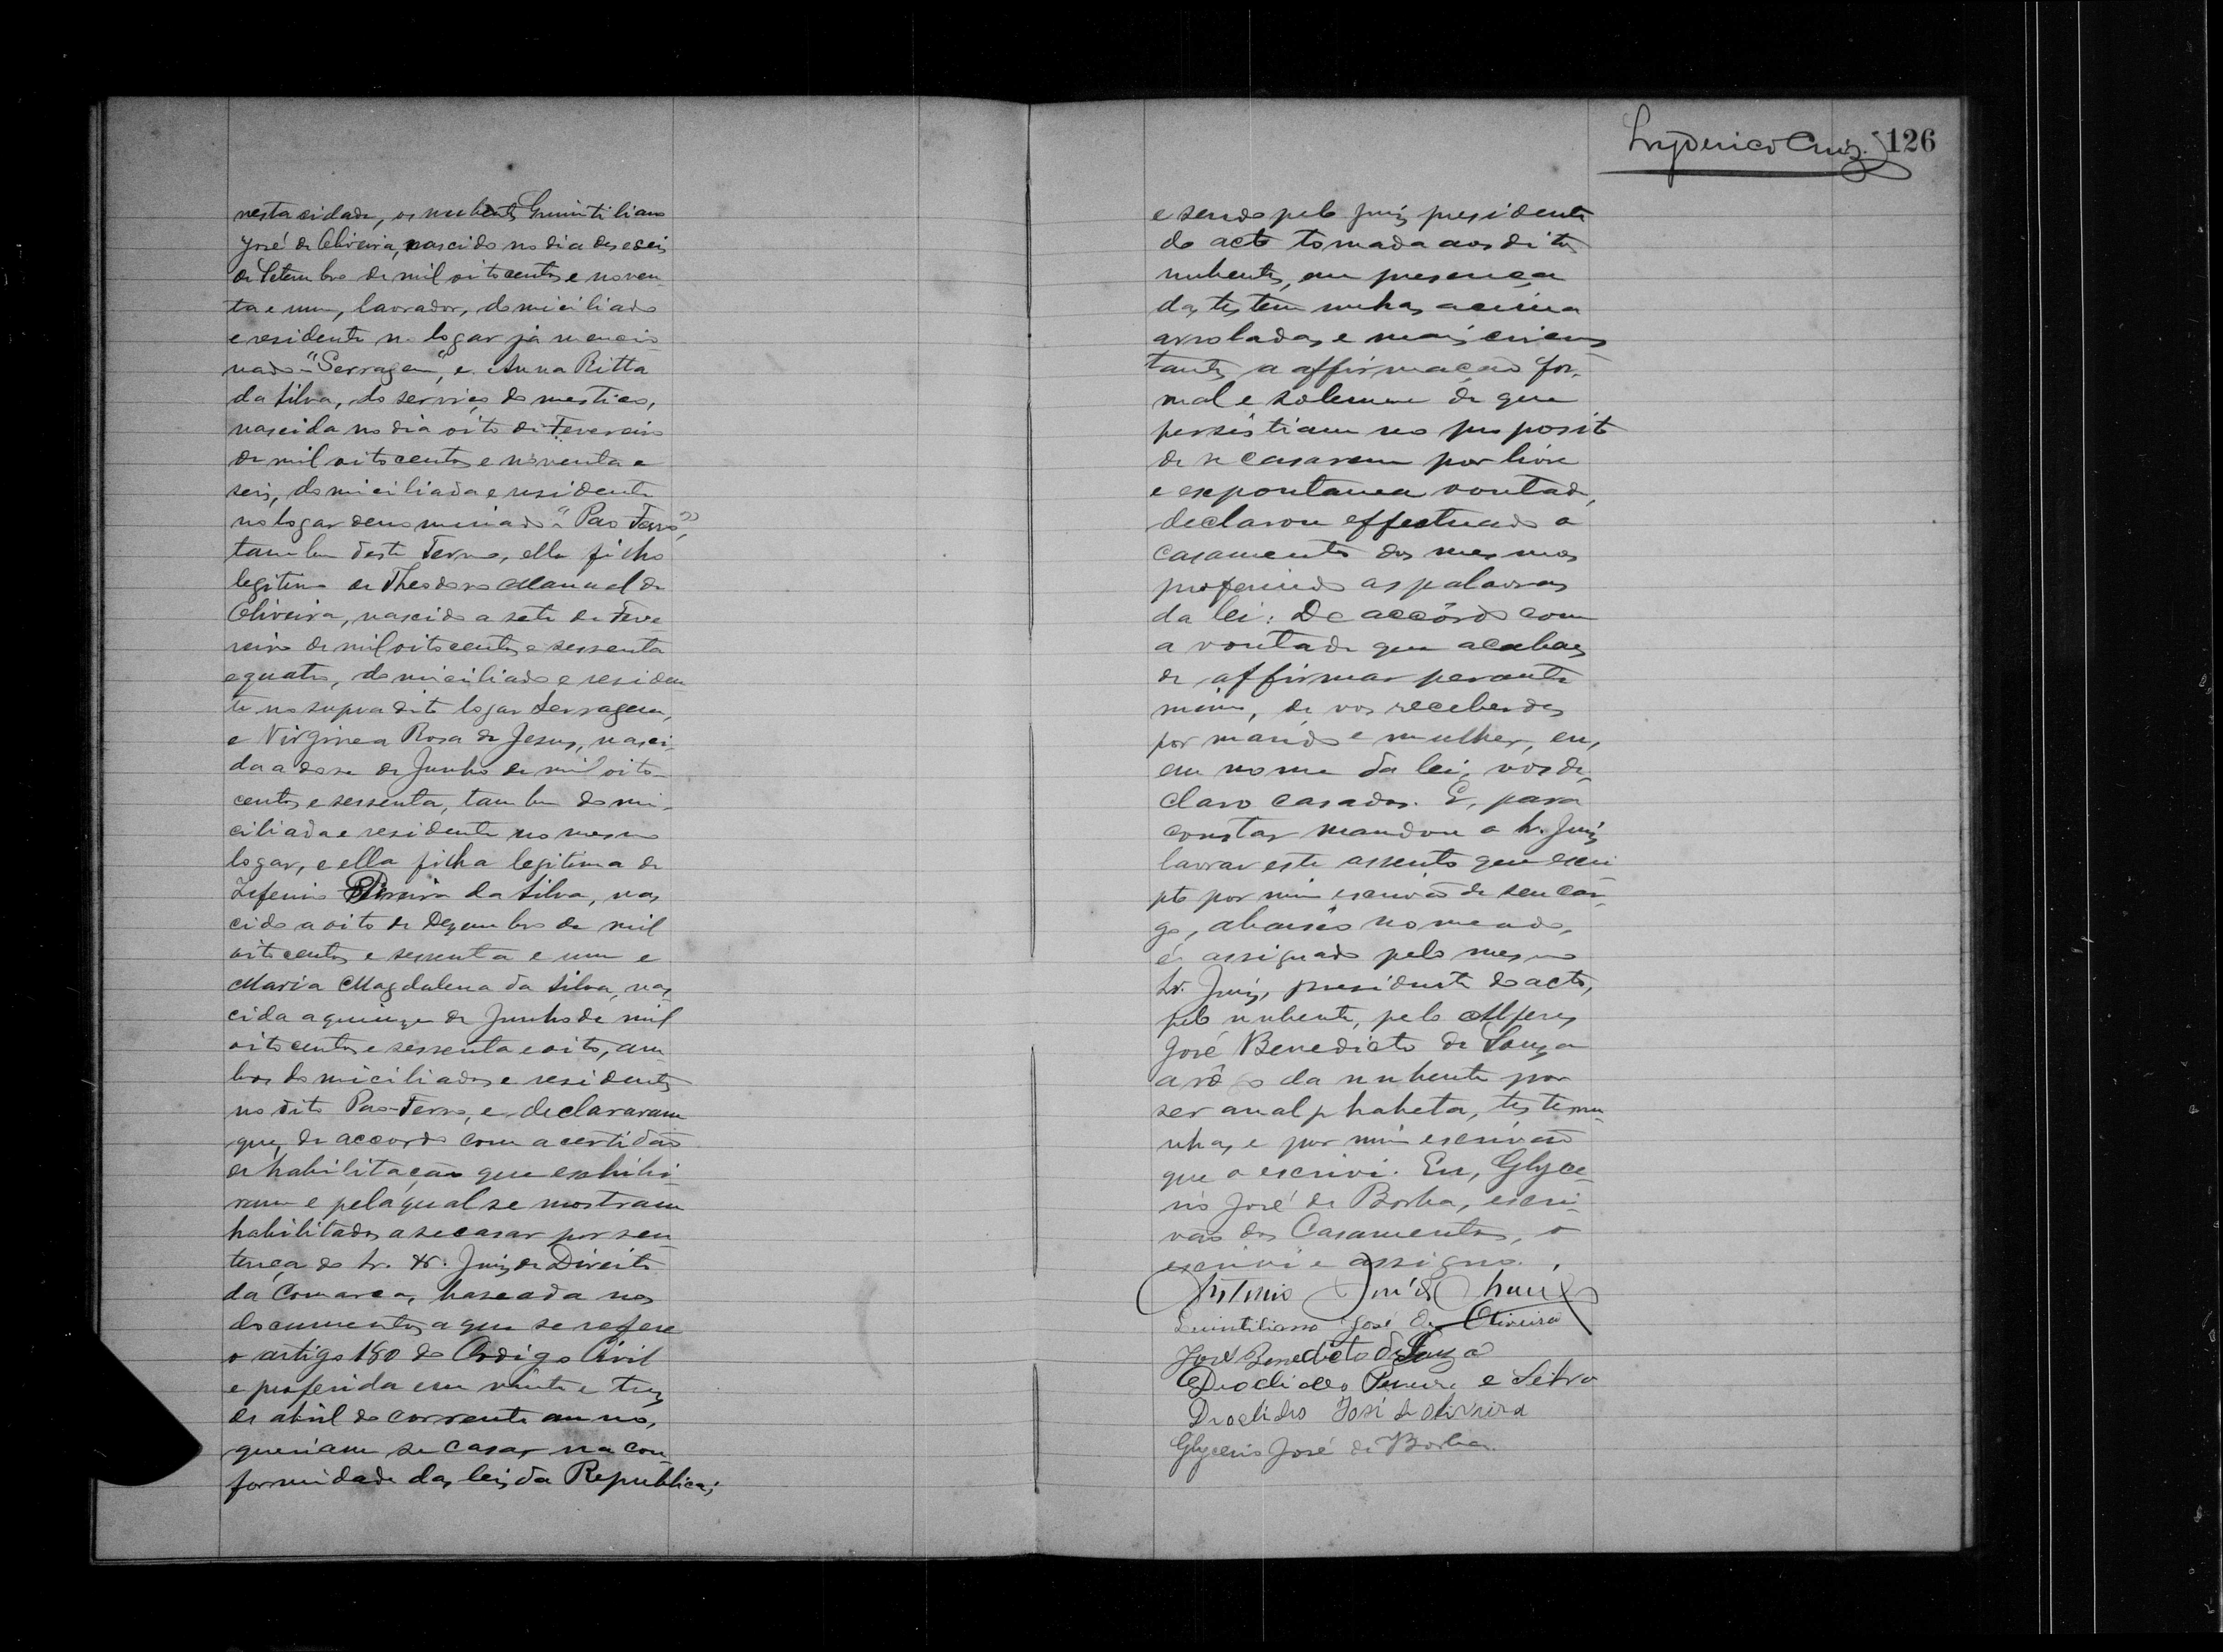 nesta cidade, os nubentes Quintiliano
José de Oliveira, nascido no dia deseseis
de Setembro de mil oito centos e noven-
ta e um, lavrador, domiciliado
e residente no logar já mencio-
nado "Serragem", e Anna Ritta
da Silva, do serviço domestico,
nascida no dia oito de Fevereiro
de mil oito centos e noventa e
seis, domiciliada e residente
no logar denominado "Pao Ferro",
tambem deste Termo, elle filho
legitimo de Theodoro Manuel de
Oliveira, nascido a sete de Feve-
reiro de mil oito centos e sessenta
e quatro, domiciliado e residen-
te no supra dito logar Serragem,
e Virginea Rosa de Jesus, nasci-
da a dose de Junho de mil oito-
centos e sessenta, tambem domi-
ciliada e residente no mesmo
logar, e ella filha legitima de
Zeferino Pereira da Silva, nas
cido a oito de Dezembro de mil
oito centos e sessenta e um e
Maria Magdalena da Silva, nas
cida a quinze de Junho de mil
oito centos e sessenta e oito, am-
bos domiciliados e residentes
no dito Pao-Ferro, e declararam
que, de accordo com a certidão
de habilitação que exhibi-
ram e pela qual se mostram
habilitados a se casar por sen-
tença do Sr. Dr. Juiz de Direito
da Comarca, baseada nos
documentos a que se refere
o artigo 180 do Codigo Civil
e proferida em vinte e tres
de abril do corrente anno,
queriam se casar na con-
formidade das leis da Republica;
126
e sendo pelo Juiz presidente
do acto tomada aos ditos
nubentes, em presença
das testemunhas acima
arroladas e mais circuns
tantes a affirmação for-
mal e solemne de que
persistiam no proposito
de se casarem por livre
e expontanea vontade,
declarou effectuado o
casamento dos mesmos
proferindo as palavras
da lei: De accôrdo com
a vontade que acabaes
de affirmar perante
mim, de vos receberdes
por marido e mulher, eu,
em nome da lei, vos de-
claro casados. E, para
constar mandou o Sr. Juiz
lavrar este assento que escri-
pto por mim escrivão de seu car-
go, abaixo nomeado,
é assignado pelo mesmo
Sr. Juiz, presidente do acto,
pelo nubente, pelo Alferes
José Benedicto de Souza
a rôgo da nubente por
ser analphabeta, testemu-
nhas e por mim escrivão
que o escrivi. Eu, Glyce-
rio José de Borba, escri-
vão dos Casamentos, o
escrivi e assigno.
Antonio José
Quintiliano José de Oliveira
José Benedicto de Souza
Pereira e Silva
José de Oliveira
Glycerio José de Borba.